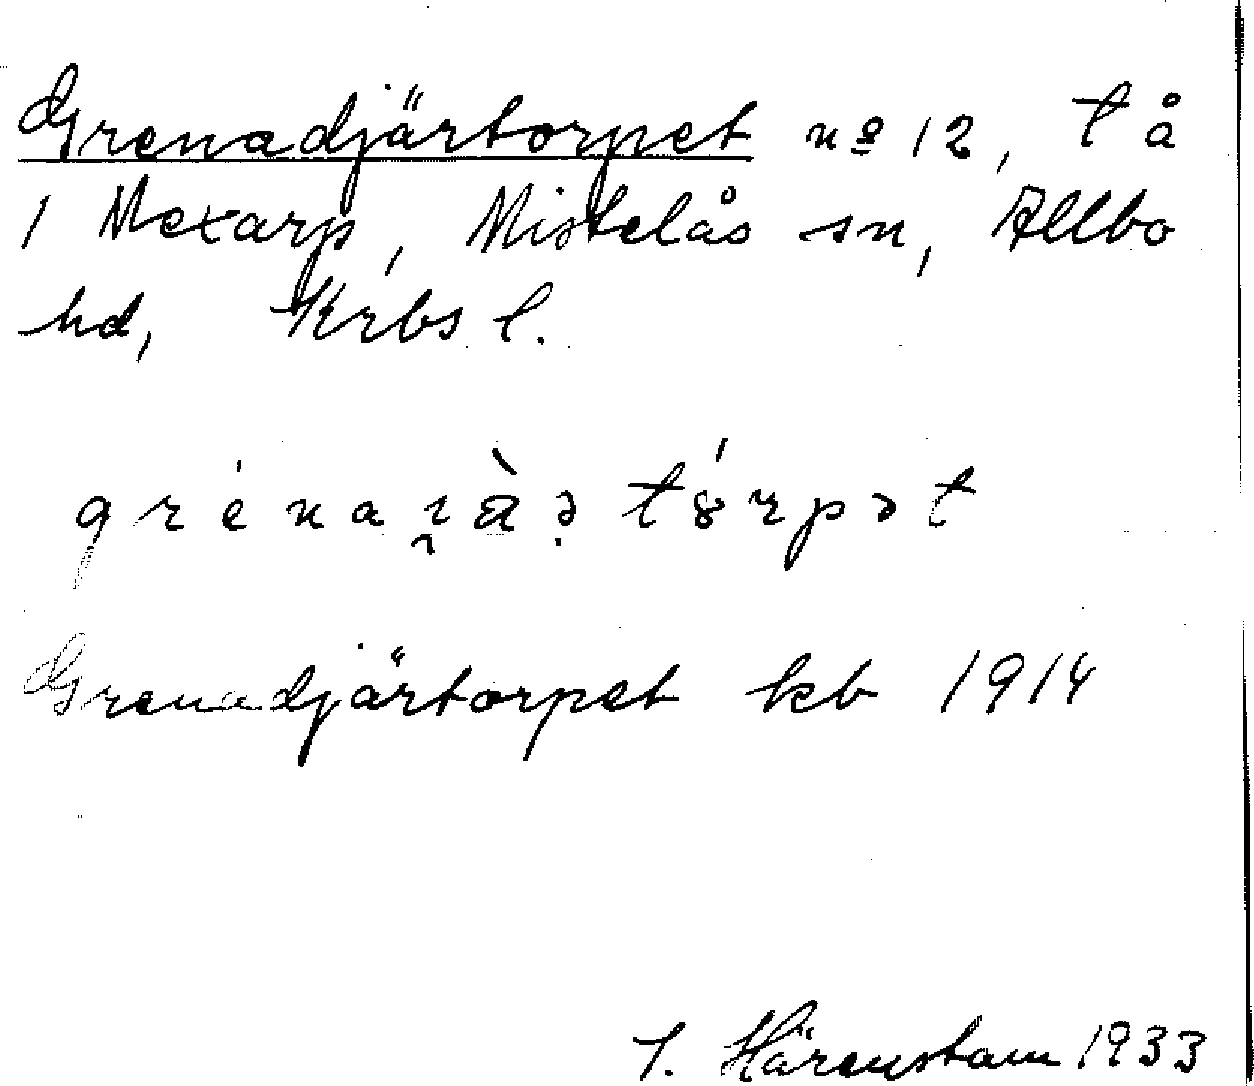 Grenadjärtorpet nº 12, t å
1 Mexarp, Mistelås sn, Allbo
hd, Krbs l.
Grenadjärtorpet kb 1914
Härenstam 1933